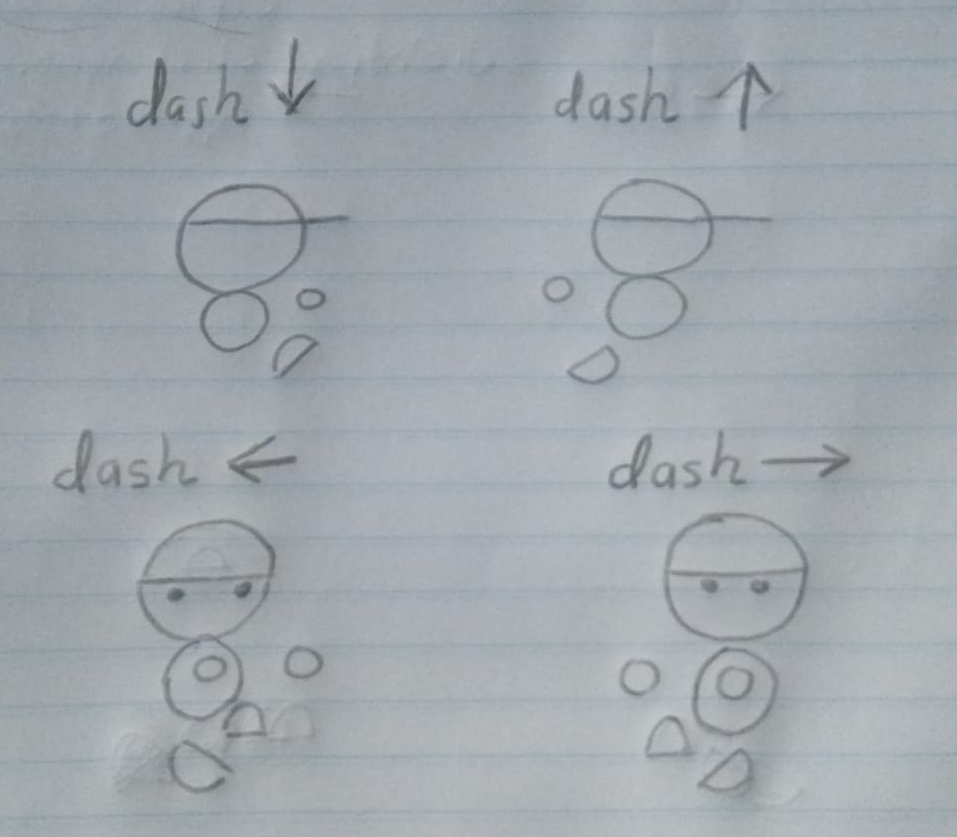 dash ↓
dash ↑
dash ←
dash →